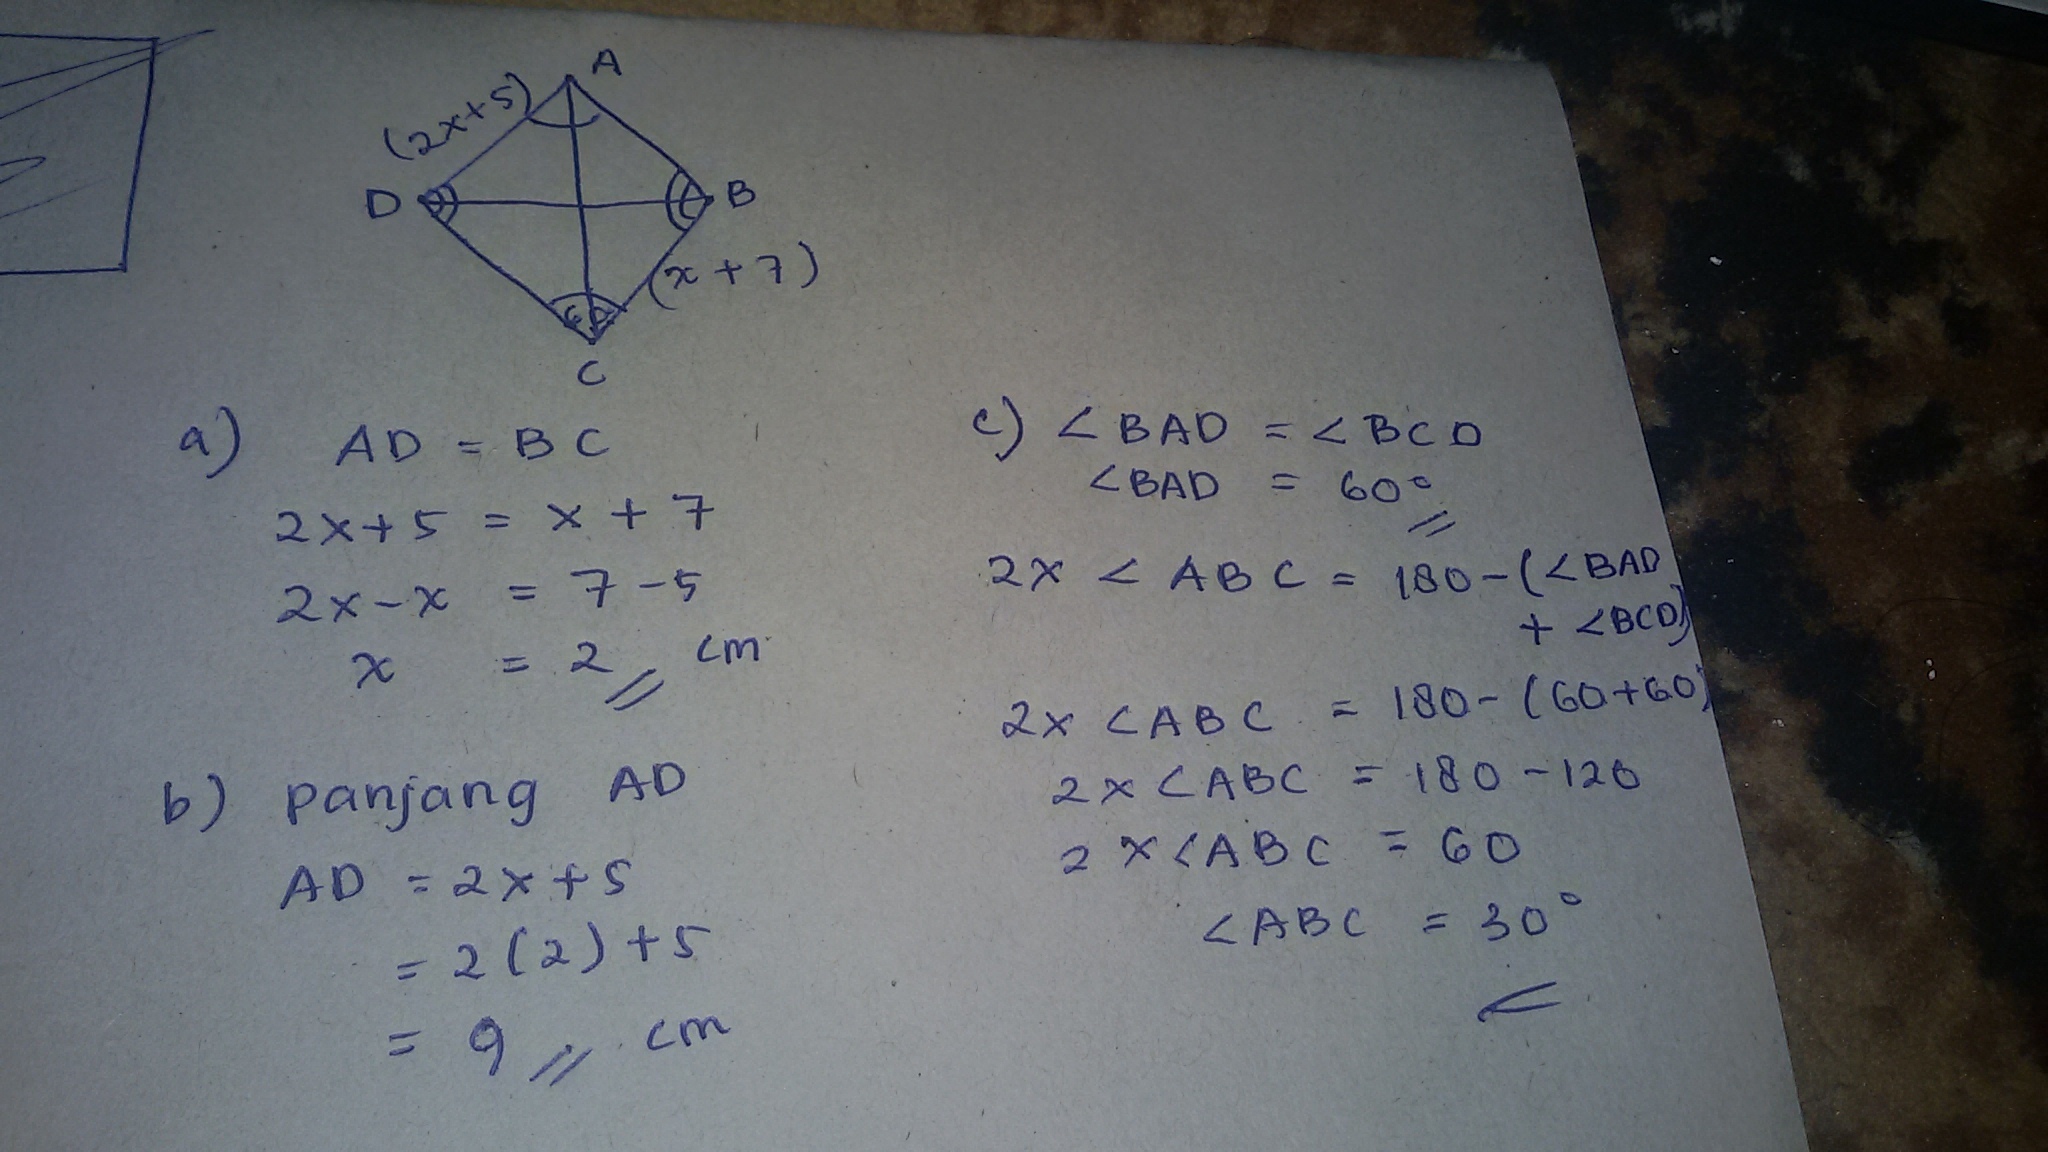 A
(2x+5)
D
B
(x+7)
60
C
a) AD = BC
2x+5 = x+7
2x-x = 7-5
x = 2 cm
b) panjang AD
AD = 2x+5
= 2(2)+5
= 9 cm
c) <BAD = <BCD
<BAD = 60°
2x <ABC = 180-(<BAD
+ <BCD)
2x <ABC = 180-(60+60)
2x <ABC = 180-120
2x <ABC = 60
<ABC = 30°